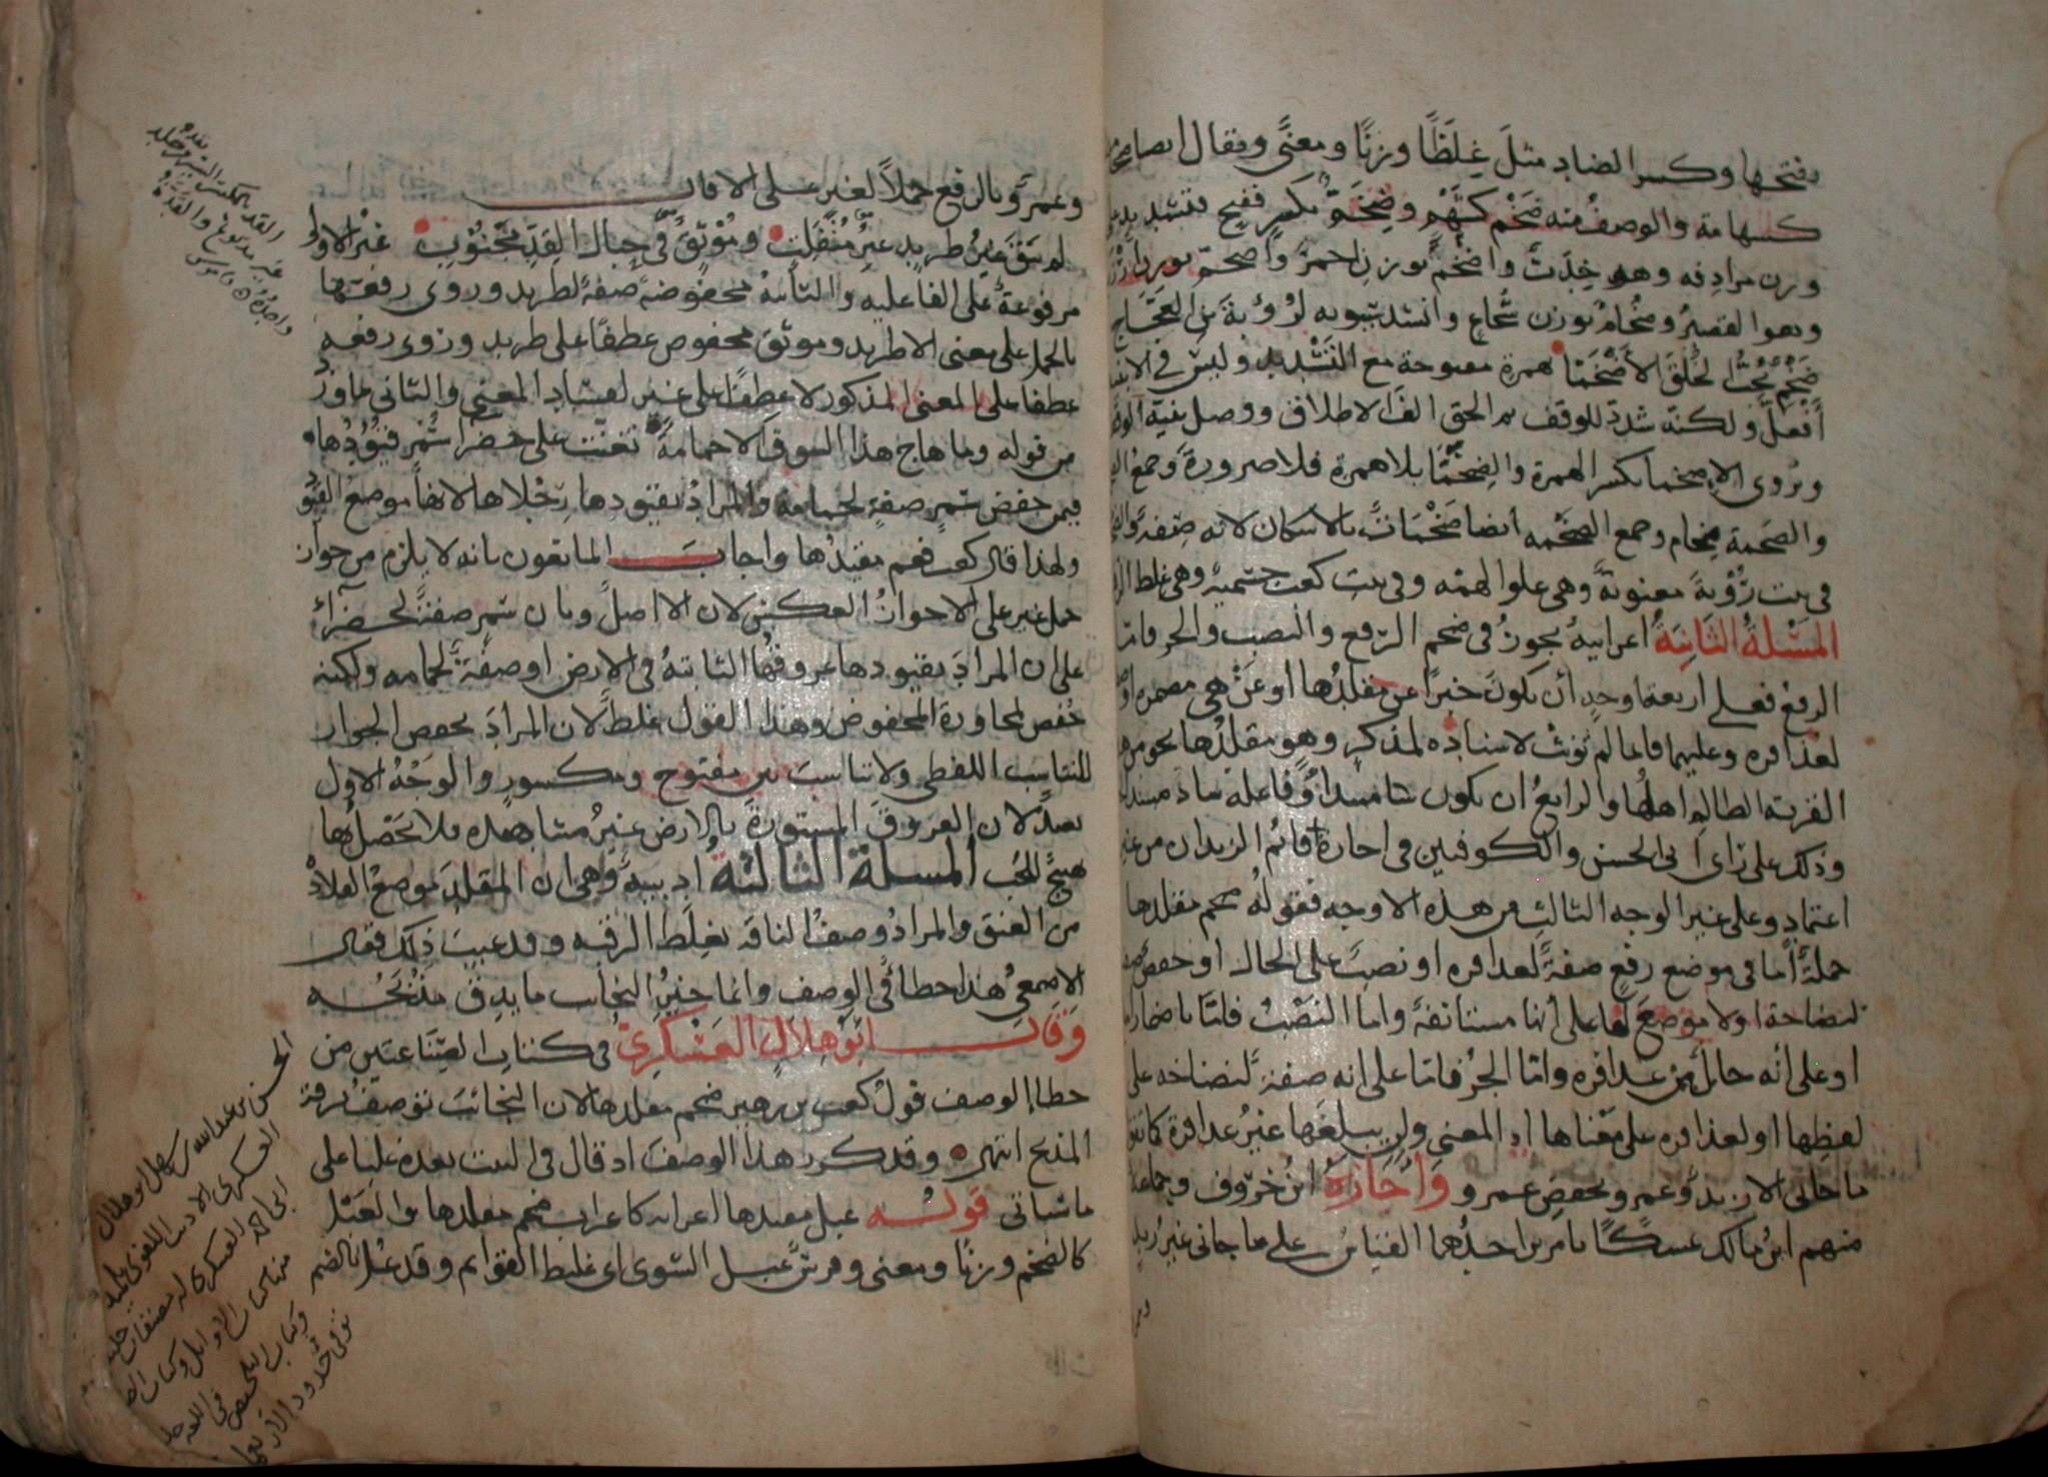 بفتحها وكسر الضاد مثل غِلَظًا وزنًا ومعنًى ويقال ايضا
كسهامة والوصف منه ضَخْم كشَهْم وضِخَمّ بكسر ففتح فتشديد
وزن مرادفه وهو خِدَبّ واضخمّ بوزن احمرّ واضخمّ بوزن
وهو القصير وضُخام بوزن شُجاع وانشد سيبويه لرؤبة بن العجّاج
ضَخْمٌ يُحِبُّ الخُلُقَ الأضْخَمّا بهمزة مفتوحة مع التشديد وليس في
أفعلّ ولكنه شدد للوقف ثم الحق الف الاطلاق ووصل بنية
ويروى الإضخمّا بكسر الهمزة والضِخَمّا بلا همزة فلا ضرورة وجمع
والضخمة ضِخام وجمع الضخمة ايضا ضَخْمات بالاسكان لانه صفة
في بيت رُؤبة معنوية وهي علو الهمة وفي بيت كعب جسمية وهي غلظ
المسئلة الثانية اعرابية يجوز في ضخم الرفع والنصب والجر فاما
الرفع فعلى اربعة اوجه أن يكون خبرًا عن مقلدُها او عن هي مضمرة
لعذافرة وعليهما فانما لم تؤنث لاسناده لمذكر وهو مقلدها نحو من
القرية الظالم اهلها والرابع ان يكون مبتدأً وفاعله سادّ مسد
وذلك على رأي ابي الحسن والكوفيين في اجازة قائم الزيدان من غير
اعتماد وعلى غير الوجه الثالث من هذه الاوجه فقوله ضخم مقلدها
جملةٌ امّا في موضع رفعٍ صفةً لعذافرة او نصب على الحال او خفض
لنضاخة اولا موضع لها على أنها مستأنفة واما النصب فامّا باضمار
او على أنه حال من عذافرة وامّا الجر فامّا على انه صفة لنضاخة على
لفظها او لعذافرة على معناها اذ المعنى ولن يبلغها غير عذافرة كما
ما جاني الا زيد وعمرو بخفض عمرو واجازه ابن خروف وجماعة
منهم ابن مالك عسكًا بامرين احدهما القياس على ما جاني غير زيد
وعمرٌو بالرفع حملاً لغير على الا قال
لم يبق غير طريد غير منفلت وموثق في حبال القد مجنوب غير الاولى
مرفوعة على الفاعليه والثانية مخفوضة صفة لطريد وروى رفعها
بالحمل على معنى الا طريد وموثق مخفوض عطفا على طريد وروى رفعه
عطفا على المعنى المذكور لا عطفا على غير لفساد المعنى والثاني ما ورد
من قوله وما هاج هذا الشوق الا حمامة تغنت على خضرا سُمْر قيودها
فيمن خفض سمر صفة لحمامة والمراد بقيودها رجلاها لانها موضع القيود
ولهذا قال كعب فعم مقيدها واجاب المانعون بانه لا يلزم من جواز
حمل غير على الا جواز العكس لان الا اصل وبان سمر صفة لخضراء
على ان المراد بقيودها عروقها الثابتة في الارض او صفة لحمامة ولكنه
خفض لمجاورة المخفوض وهذا القول غلط لان المراد بخفض الجوار
التناسب اللفظي ولا تناسب بين مفتوح ومكسور والوجه الاول
بعيد لان العروق المستورة بالارض غير مشاهدة فلا يحصل بها
هيج للمحب المسئلة الثالثة ادبية وهي ان المقلد موضع القلادة
من العنق والمراد وصف الناقة بغلظ الرقبه وقد عيب ذلك فقال
الاصمعي هذا خطأ في الوصف وانما خير النجائب ما يدق مذبحه
وقال ابو هلال العسكري في كتاب الصناعتين من
خطاء الوصف قول كعب بن زهير ضخم مقلدها لان النجائب توصف بدقة
المذبح انتهى وقد كرر هذا الوصف اذ قال في البيت بعده غلبا على
ما سياتي قوله عبل مقيدها اعرابه كاعراب ضخم مقلدها والعَبْل
كالضخم وزنًا ومعنى وفرسٌ عبل الشوى اي غليظ القوائم وقد عبُل بالضم
القد بالكسر السير يقد من جلد
غير مدبوغ والقدة
واحدة قاموس
الحسن بن عبد الله بن سهل ابو هلال
العسكري الاديب اللغوي تلميذ
ابي احمد العسكري له مصنفات جليلة
منها كتاب الاوائل وكتاب
وكتاب التلخيص في اللغة
توفي في حدود الاربعمائة